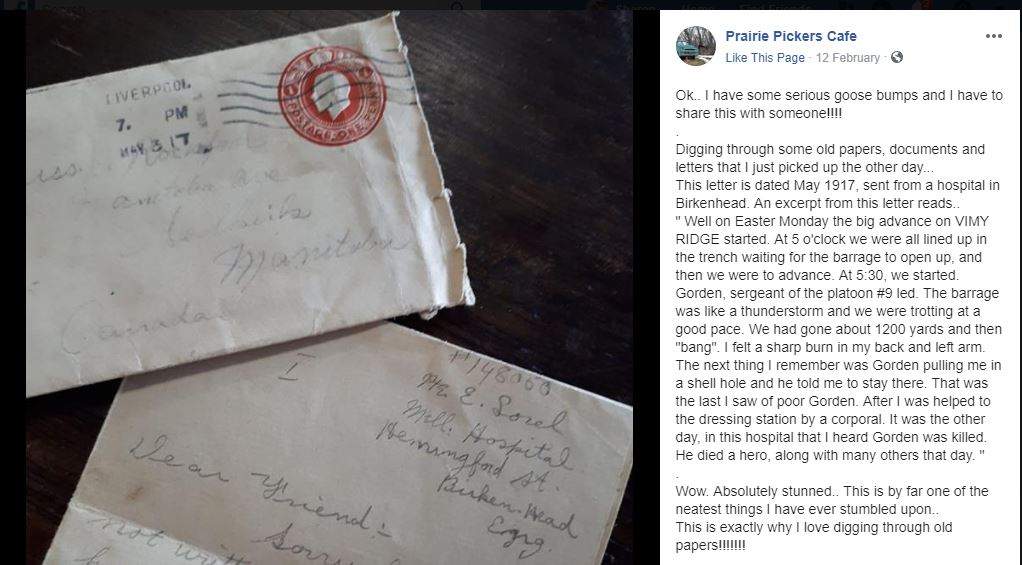 LIVERPOOL
7. PM
MAY 3 17
POSTAGE ONE PENNY
Manitoba
Canada
I
#148060
Pte E. Sorel
Mili. Hospital
Hemingford St.
Birken-Head
Eng.
Dear Friend:-
Sorry
not
Prairie Pickers Cafe
Like This Page · 12 February ·
Ok.. I have some serious goose bumps and I have to
share this with someone!!!!
.
Digging through some old papers, documents and
letters that I just picked up the other day...
This letter is dated May 1917, sent from a hospital in
Birkenhead. An excerpt from this letter reads..
" Well on Easter Monday the big advance on VIMY
RIDGE started. At 5 o'clock we were all lined up in
the trench waiting for the barrage to open up, and
then we were to advance. At 5:30, we started.
Gorden, sergeant of the platoon #9 led. The barrage
was like a thunderstorm and we were trotting at a
good pace. We had gone about 1200 yards and then
"bang". I felt a sharp burn in my back and left arm.
The next thing I remember was Gorden pulling me in
a shell hole and he told me to stay there. That was
the last I saw of poor Gorden. After I was helped to
the dressing station by a corporal. It was the other
day, in this hospital that I heard Gorden was killed.
He died a hero, along with many others that day. "
.
Wow. Absolutely stunned.. This is by far one of the
neatest things I have ever stumbled upon..
This is exactly why I love digging through old
papers!!!!!!!